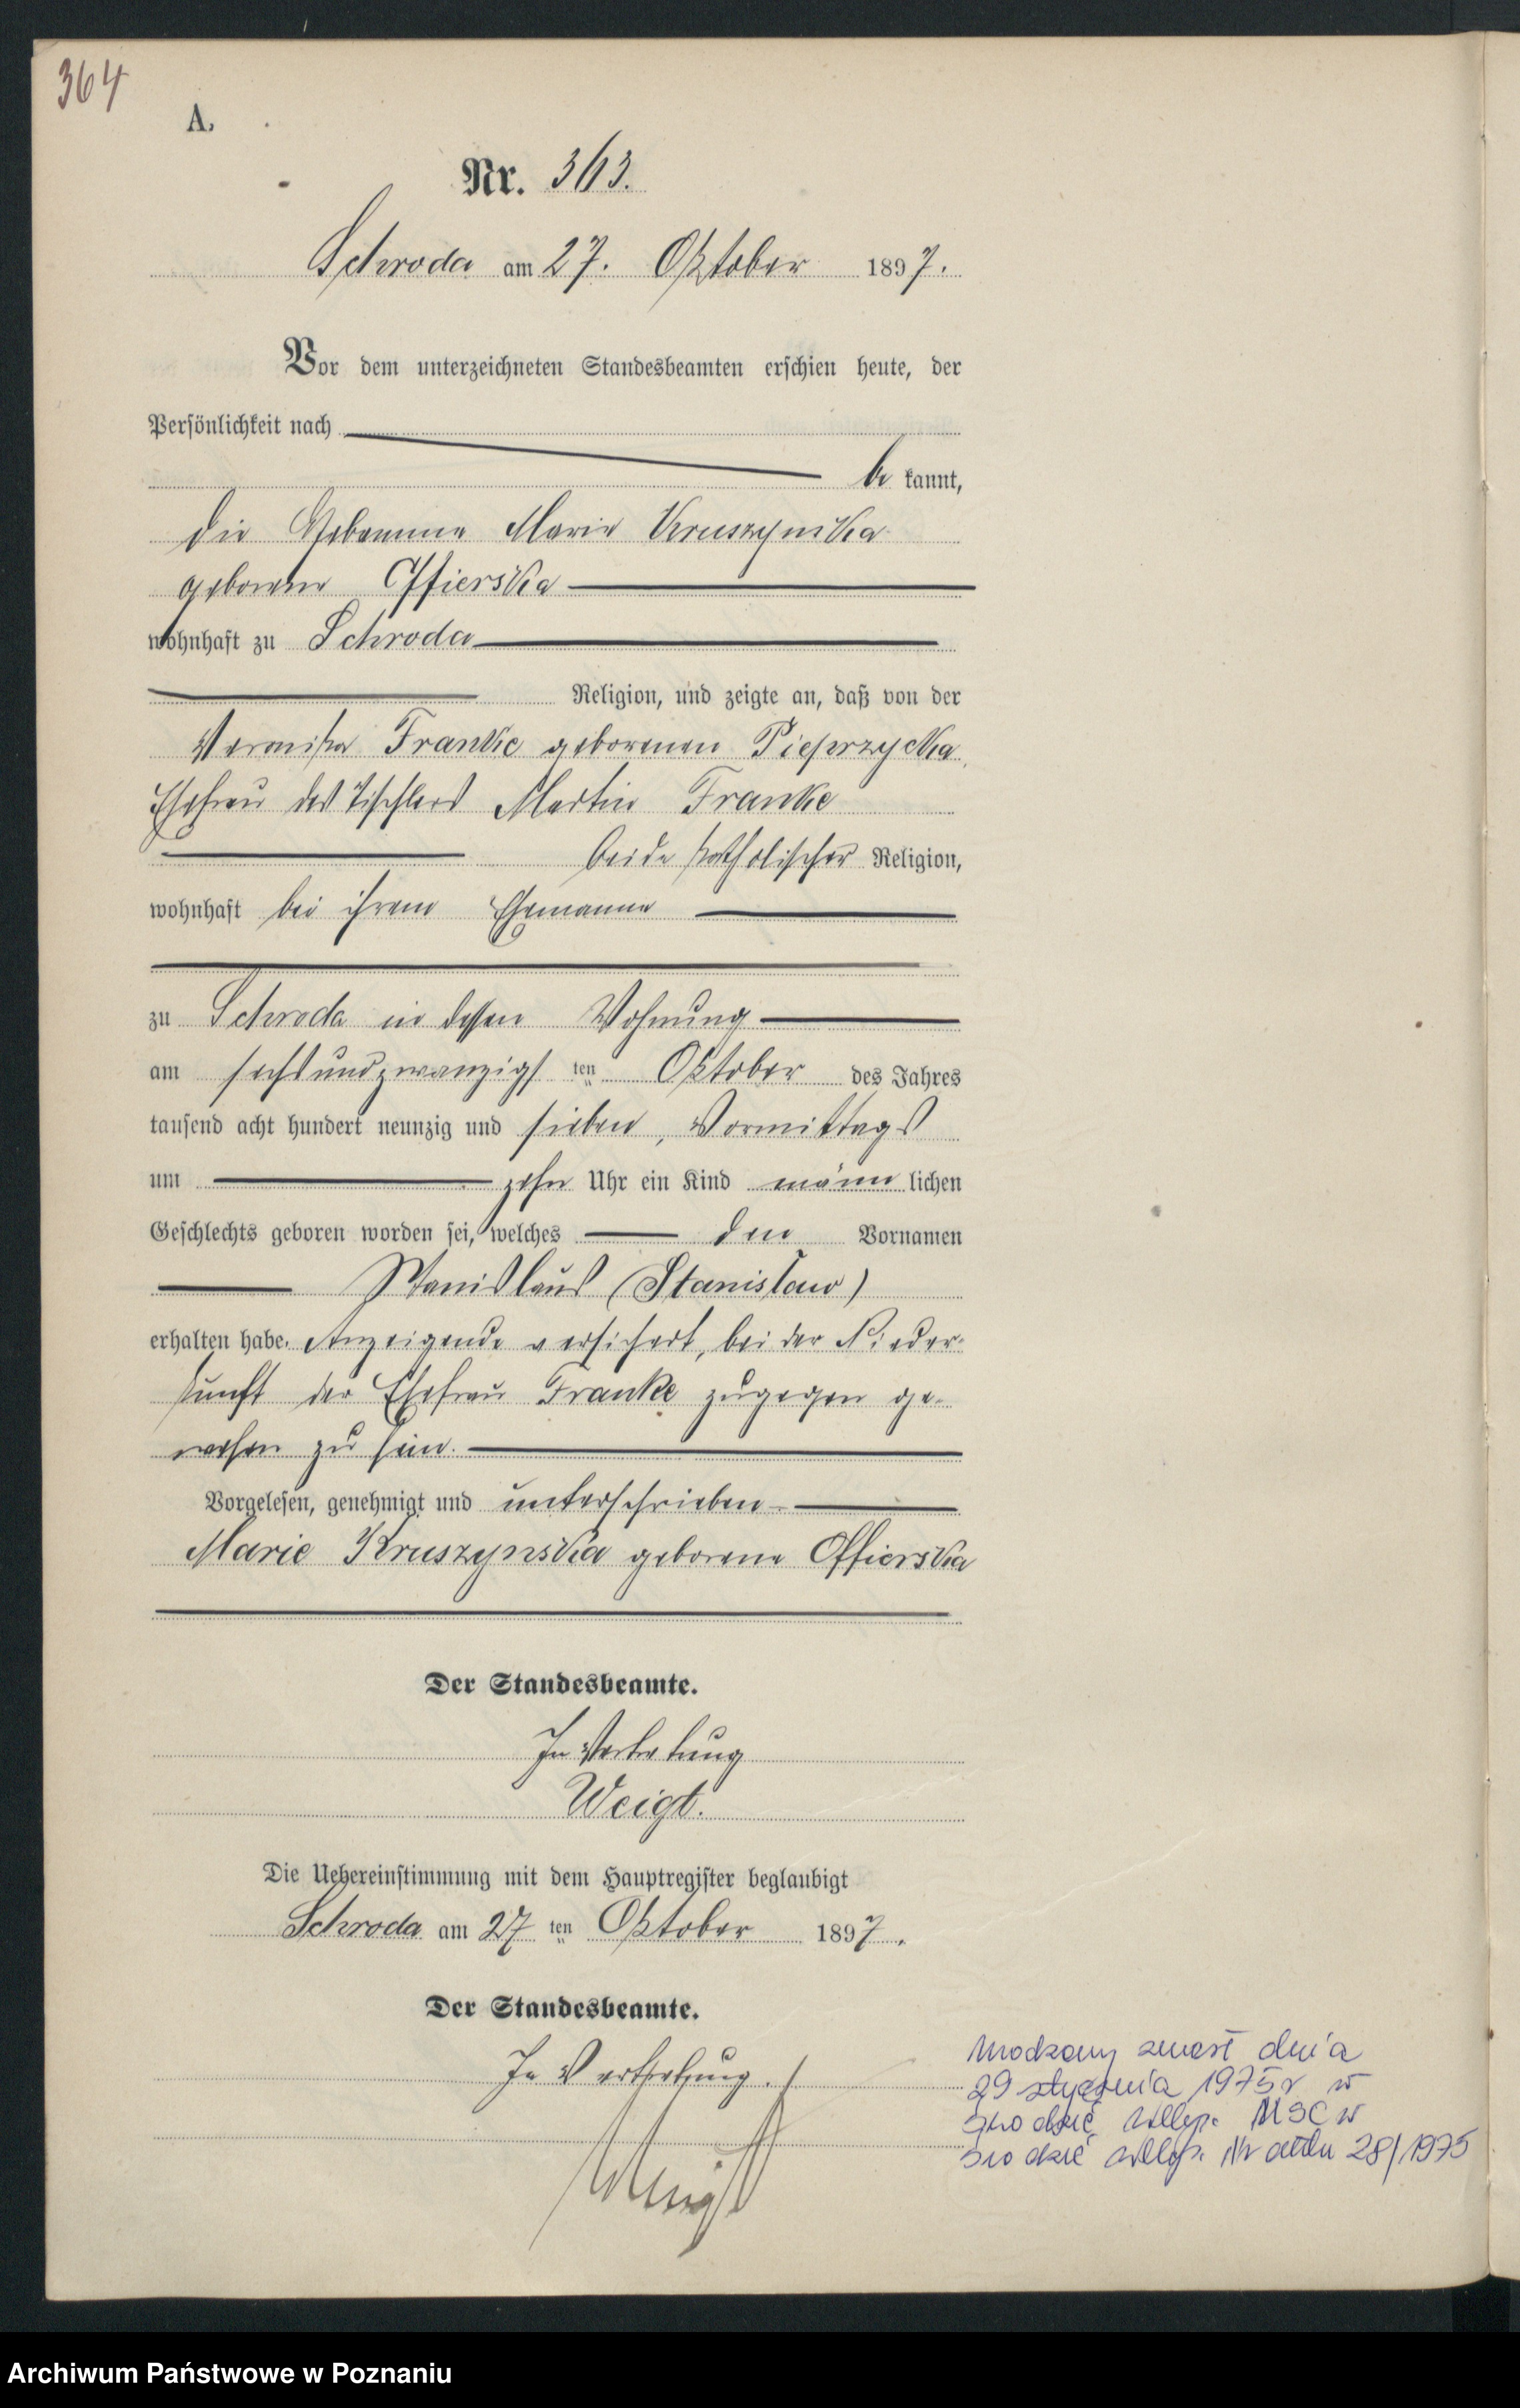 364
A.
Nr. 363.
Schroda am 27. Oktober 1897.
Vor dem unterzeichneten Standesbeamten erschien heute, der
Persönlichkeit nach
be kannt,
die Hebamme Marie Kruszynska
geborene Offierska
wohnhaft zu Schroda
Religion, und zeigte an, daß von der
Veronika Franke geborenen Pieprzycka,
Ehefrau des Tischlers Martin Franke
beide katholischer Religion,
wohnhaft bei ihrem Ehemanne
zu Schroda in dessen Wohnung
am sechsundzwanzigsten Oktober des Jahres
tausend acht hundert neunzig und sieben, Vormittags
um zehn Uhr ein Kind männlichen
Geschlechts geboren worden sei, welches den Vornamen
Stanislaus (Stanisław)
erhalten habe. Anzeigende versichert, bei der Nieder-
kunft der Ehefrau Franke zugegen ge-
wesen zu sein.
Vorgelesen, genehmigt und unterschrieben
Marie Kruszynska geborene Offierska
Der Standesbeamte.
In Vertretung
Weigt.
Die Uebereinstimmung mit dem Hauptregister beglaubigt
Schroda am 27 ten Oktober 1897.
Der Standesbeamte.
In Vertretung.
Weigt
dnia
29 stycznia 1975 r w
USC w
Nr aktu 28/1975
Archiwum Państwowe w Poznaniu